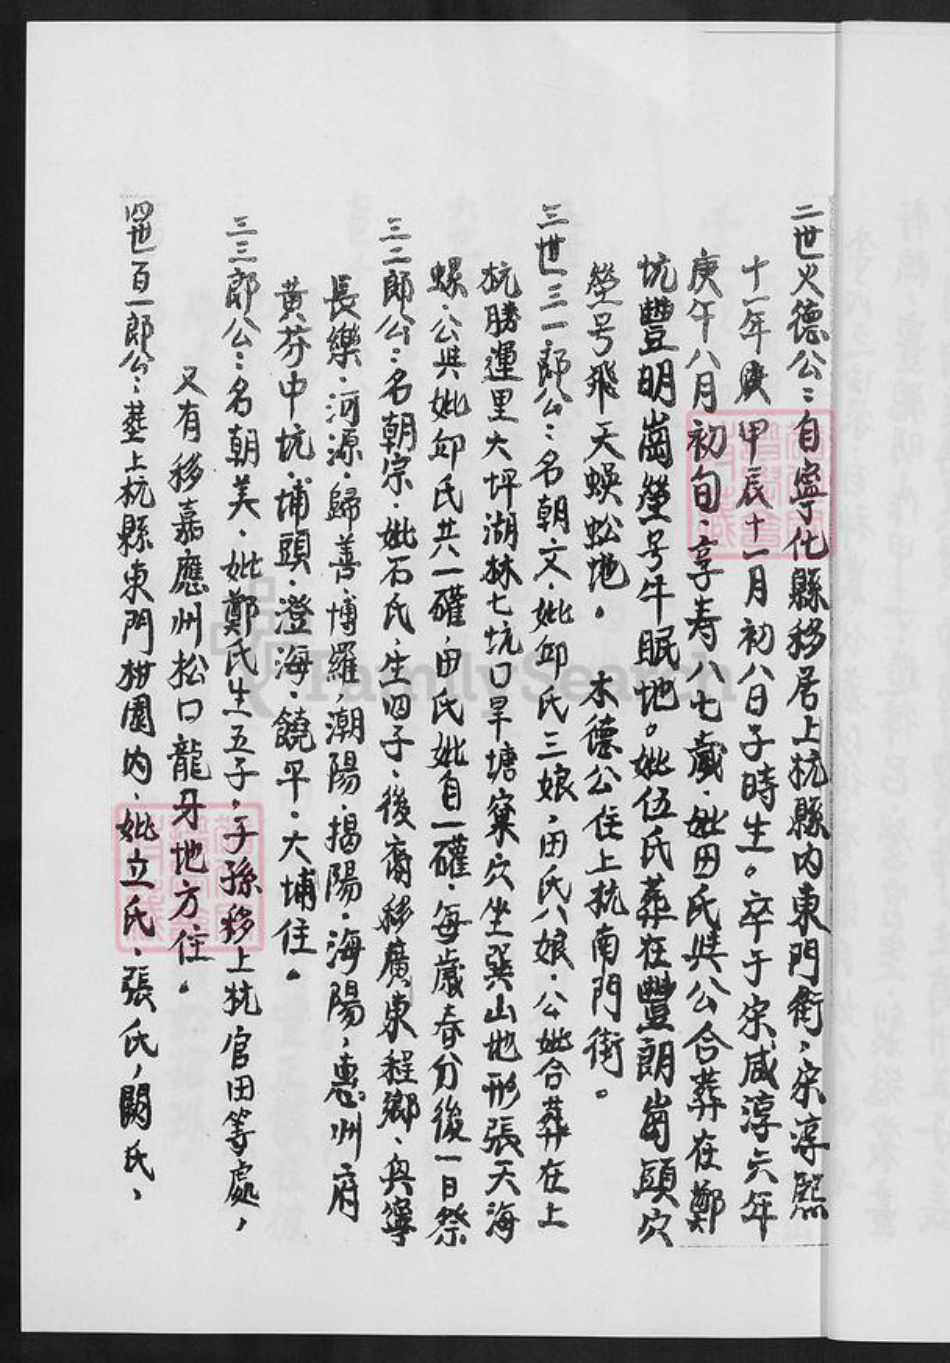 二世火德公：自寧化縣移居上杭縣內東門街，宋淳熙
十一年歲甲辰十一月初八日子時生。卒于宋咸淳六年
庚午八月初旬．享寿八七歲．妣田氏與公合葬在鄭
坑豐明崗塋号牛眠地。妣伍氏葬在豐朗崗頭穴
塋号飛天蜈蚣地。 木德公住上杭南門街。
三世三一郎公：名朝文．妣邱氏三娘．田氏八娘．公妣合葬在上
杭勝運里大坪湖林七坑口旱塘窠穴坐巽山地形張天海
螺．公與妣邱氏共一礶．田氏妣自一礶．每歲春分後一日祭
三二郎公：名朝宗．妣石氏．生四子．後裔移廣東程鄉．興寧
長樂．河源．歸善．博羅．潮陽．揭陽．海陽，惠州府
黃芬中坑．埔頭．澄海．饒平．大埔住。
三三郎公：名朝美．妣鄭氏生五子。子孫移上杭官田等處，
又有移嘉應州松口龍牙地方住。
四世百一郎公：塟上杭縣東門柑園內．妣立氏．張氏，闕氏，
FamilySearch